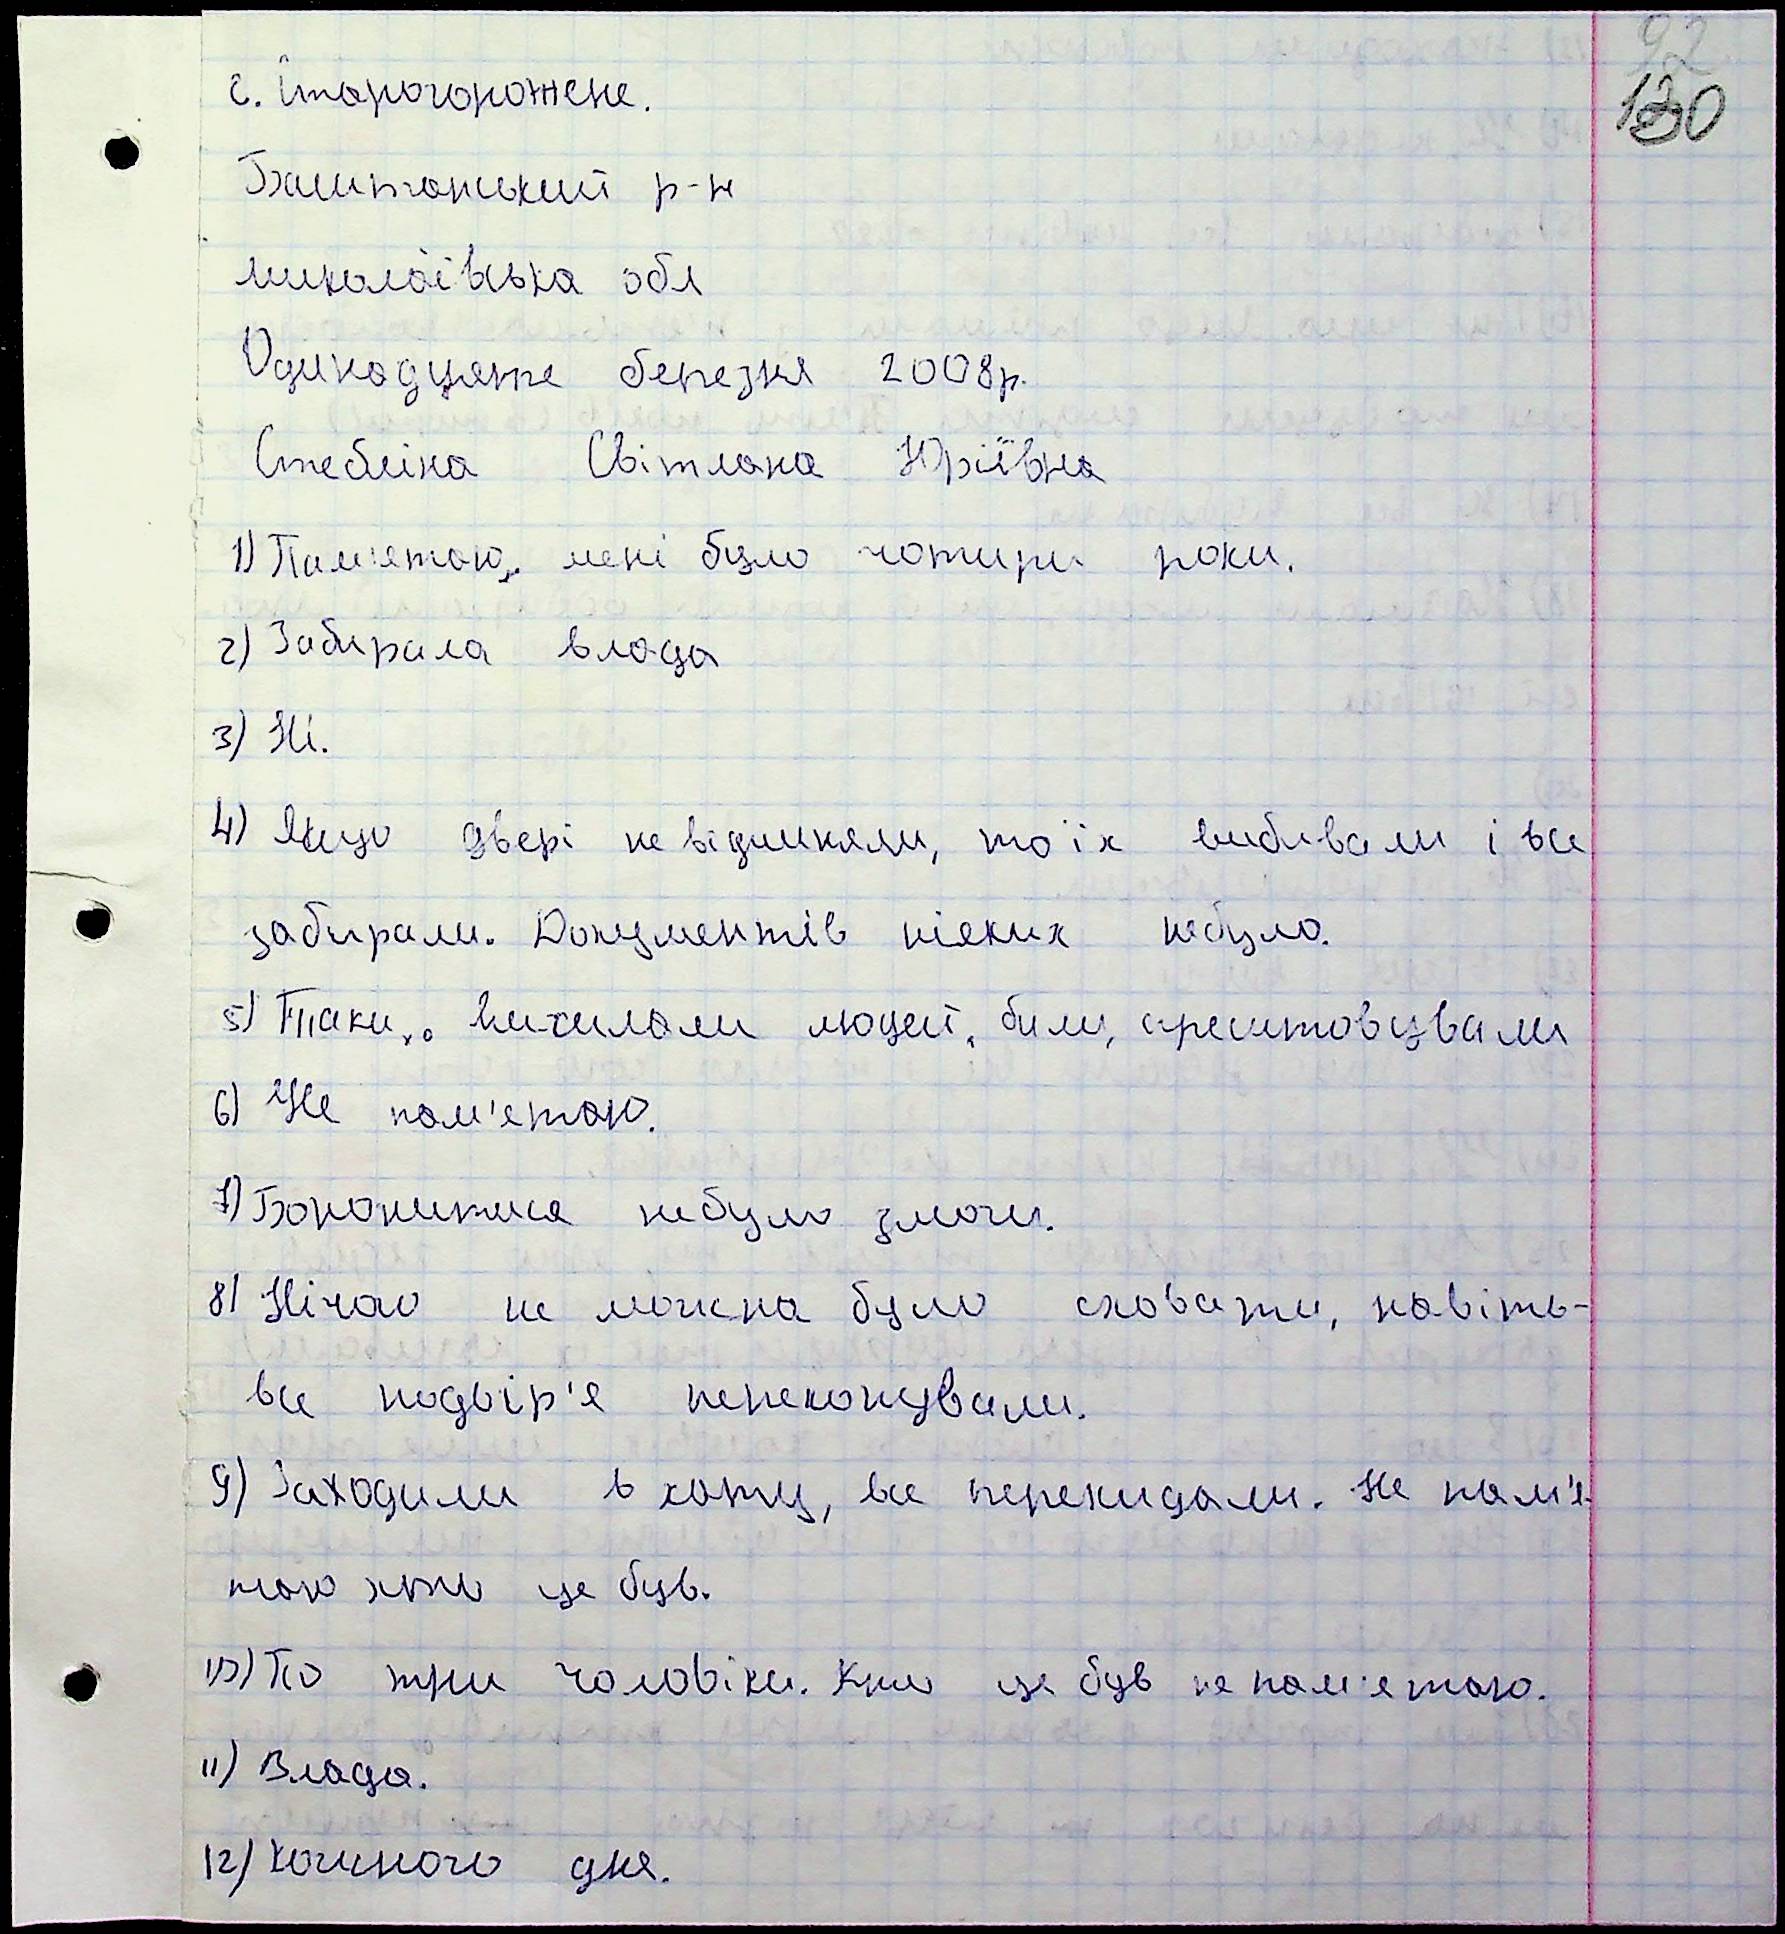 92
130
с. Старогорожене.
Баштанський р-н
миколаївська обл
Одинадцяте березня 2008р.
Стебліна Світлана Юріївна
1) Пам'ятаю, мені було чотири роки.
2) Забирала влада
3) Ні.
4) Якщо двері не відмикали, то їх вибивали і все
забирали. Документів ніяких небуло.
5) Таки, висилали людей, били, арештовували
6) Не пам'ятаю.
7) Боронитися небуло змоги.
8) Нічого не можна було сховати, навіть-
все подвір'я перекопували.
9) Заходили в хату, все перекидали. Не пам'я-
таю хто це був.
10) По три чоловіки. Хто це був не пам'ятаю.
11) Влада.
12) Кожного дня.